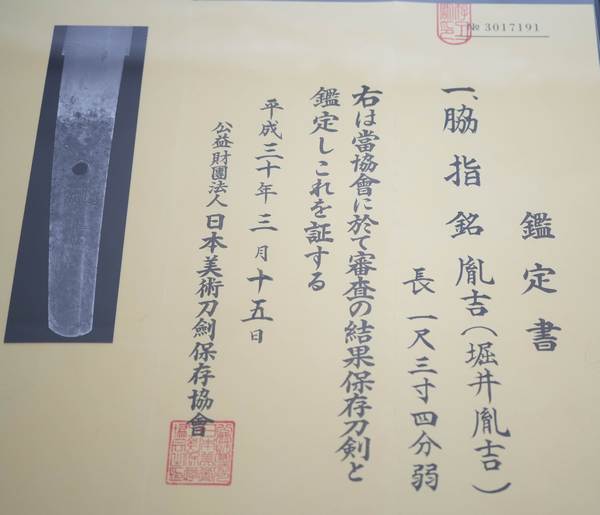 № 3017191
鑑定書
一、脇指 銘 胤吉(堀井胤吉)
長 一尺三寸四分弱
右は當協會に於て審査の結果保存刀剣と
鑑定しこれを証する
平成三十年三月十五日
公益財團法人 日本美術刀劍保存協會